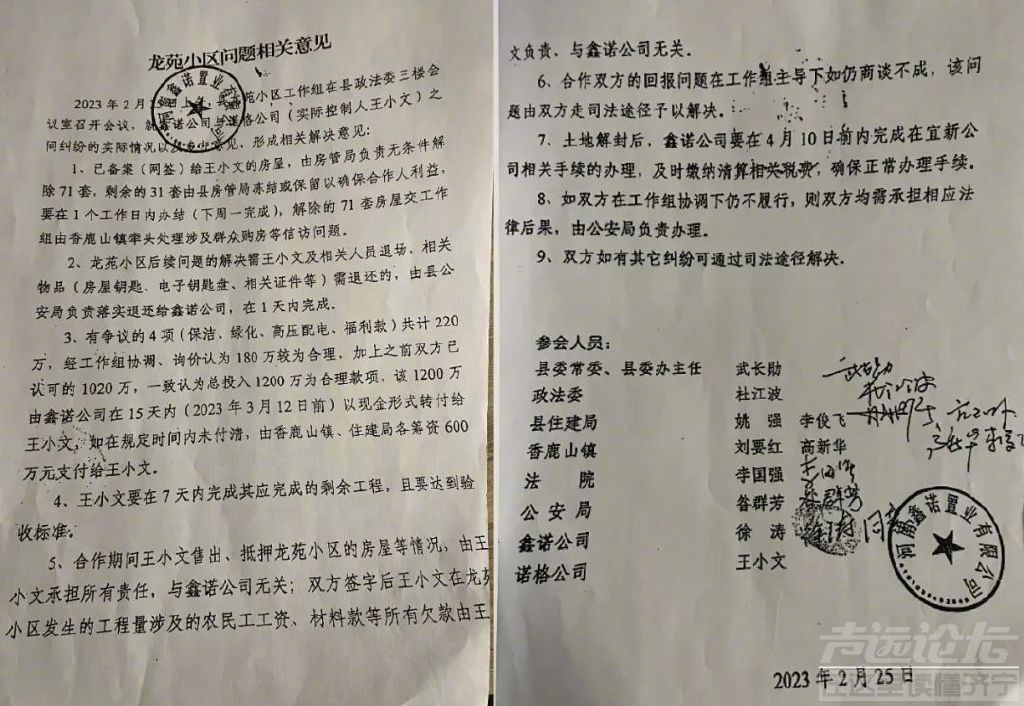 龙苑小区问题相关意见
2023年2月 苑小区工作组在县政法委三楼会
议室召开会议, 诺公司与诺格公司(实际控制人王小文)之
间纠纷的实际情况以 意见,形成相关解决意见:
1、已备案(网签)给王小文的房屋,由房管局负责无条件解
除71套,剩余的31套由县房管局冻结或保留以确保合作人利益,
要在1个工作日内办结(下周一完成),解除的71套房屋交工作
组由香鹿山镇牵头处理涉及群众购房等信访问题。
2、龙苑小区后续问题的解决需王小文及相关人员退场,相关
物品(房屋钥匙、电子钥匙盘、相关证件等)需退还的,由县公
安局负责落实退还给鑫诺公司,在1天内完成。
3、有争议的4项(保洁、绿化、高压配电、福利款)共计220
万,经工作组协调、询价认为180万较为合理,加上之前双方已
认可的1020万,一致认为总投入1200万为合理款项,该1200万
由鑫诺公司在15天内(2023年3月12日前)以现金形式转付给
王小文,如在规定时间内未付清,由香鹿山镇、住建局各筹资600
万元支付给王小文。
4、王小文要在7天内完成其应完成的剩余工程,且要达到验
收标准。
5、合作期间王小文售出、抵押龙苑小区的房屋等情况,由王
小文承担所有责任,与鑫诺公司无关;双方签字后王小文在龙苑
小区发生的工程量涉及的农民工工资、材料款等所有欠款由王
文负责、与鑫诺公司无关。
6、合作双方的回报问题在工作组主导下如仍商谈不成,该问
题由双方走司法途径予以解决。
7、土地解封后,鑫诺公司要在4月10日前内完成在宜新公
司相关手续的办理,及时缴纳清算相关税费,确保正常办理手续。
8、如双方在工作组协调下仍不履行,则双方均需承担相应法
律后果,由公安局负责办理。
9、双方如有其它纠纷可通过司法途径解决。
参会人员:
县委常委、县委办主任 武长勋
政法委 杜江波
县住建局 姚强 李俊飞
香鹿山镇 刘要红 高新华
法院 李国强
公安局 昝群芳
鑫诺公司 徐涛
诺格公司 王小文
河南鑫诺置业有限公司
2023年2月25日
声远论坛
在这里读懂济宁